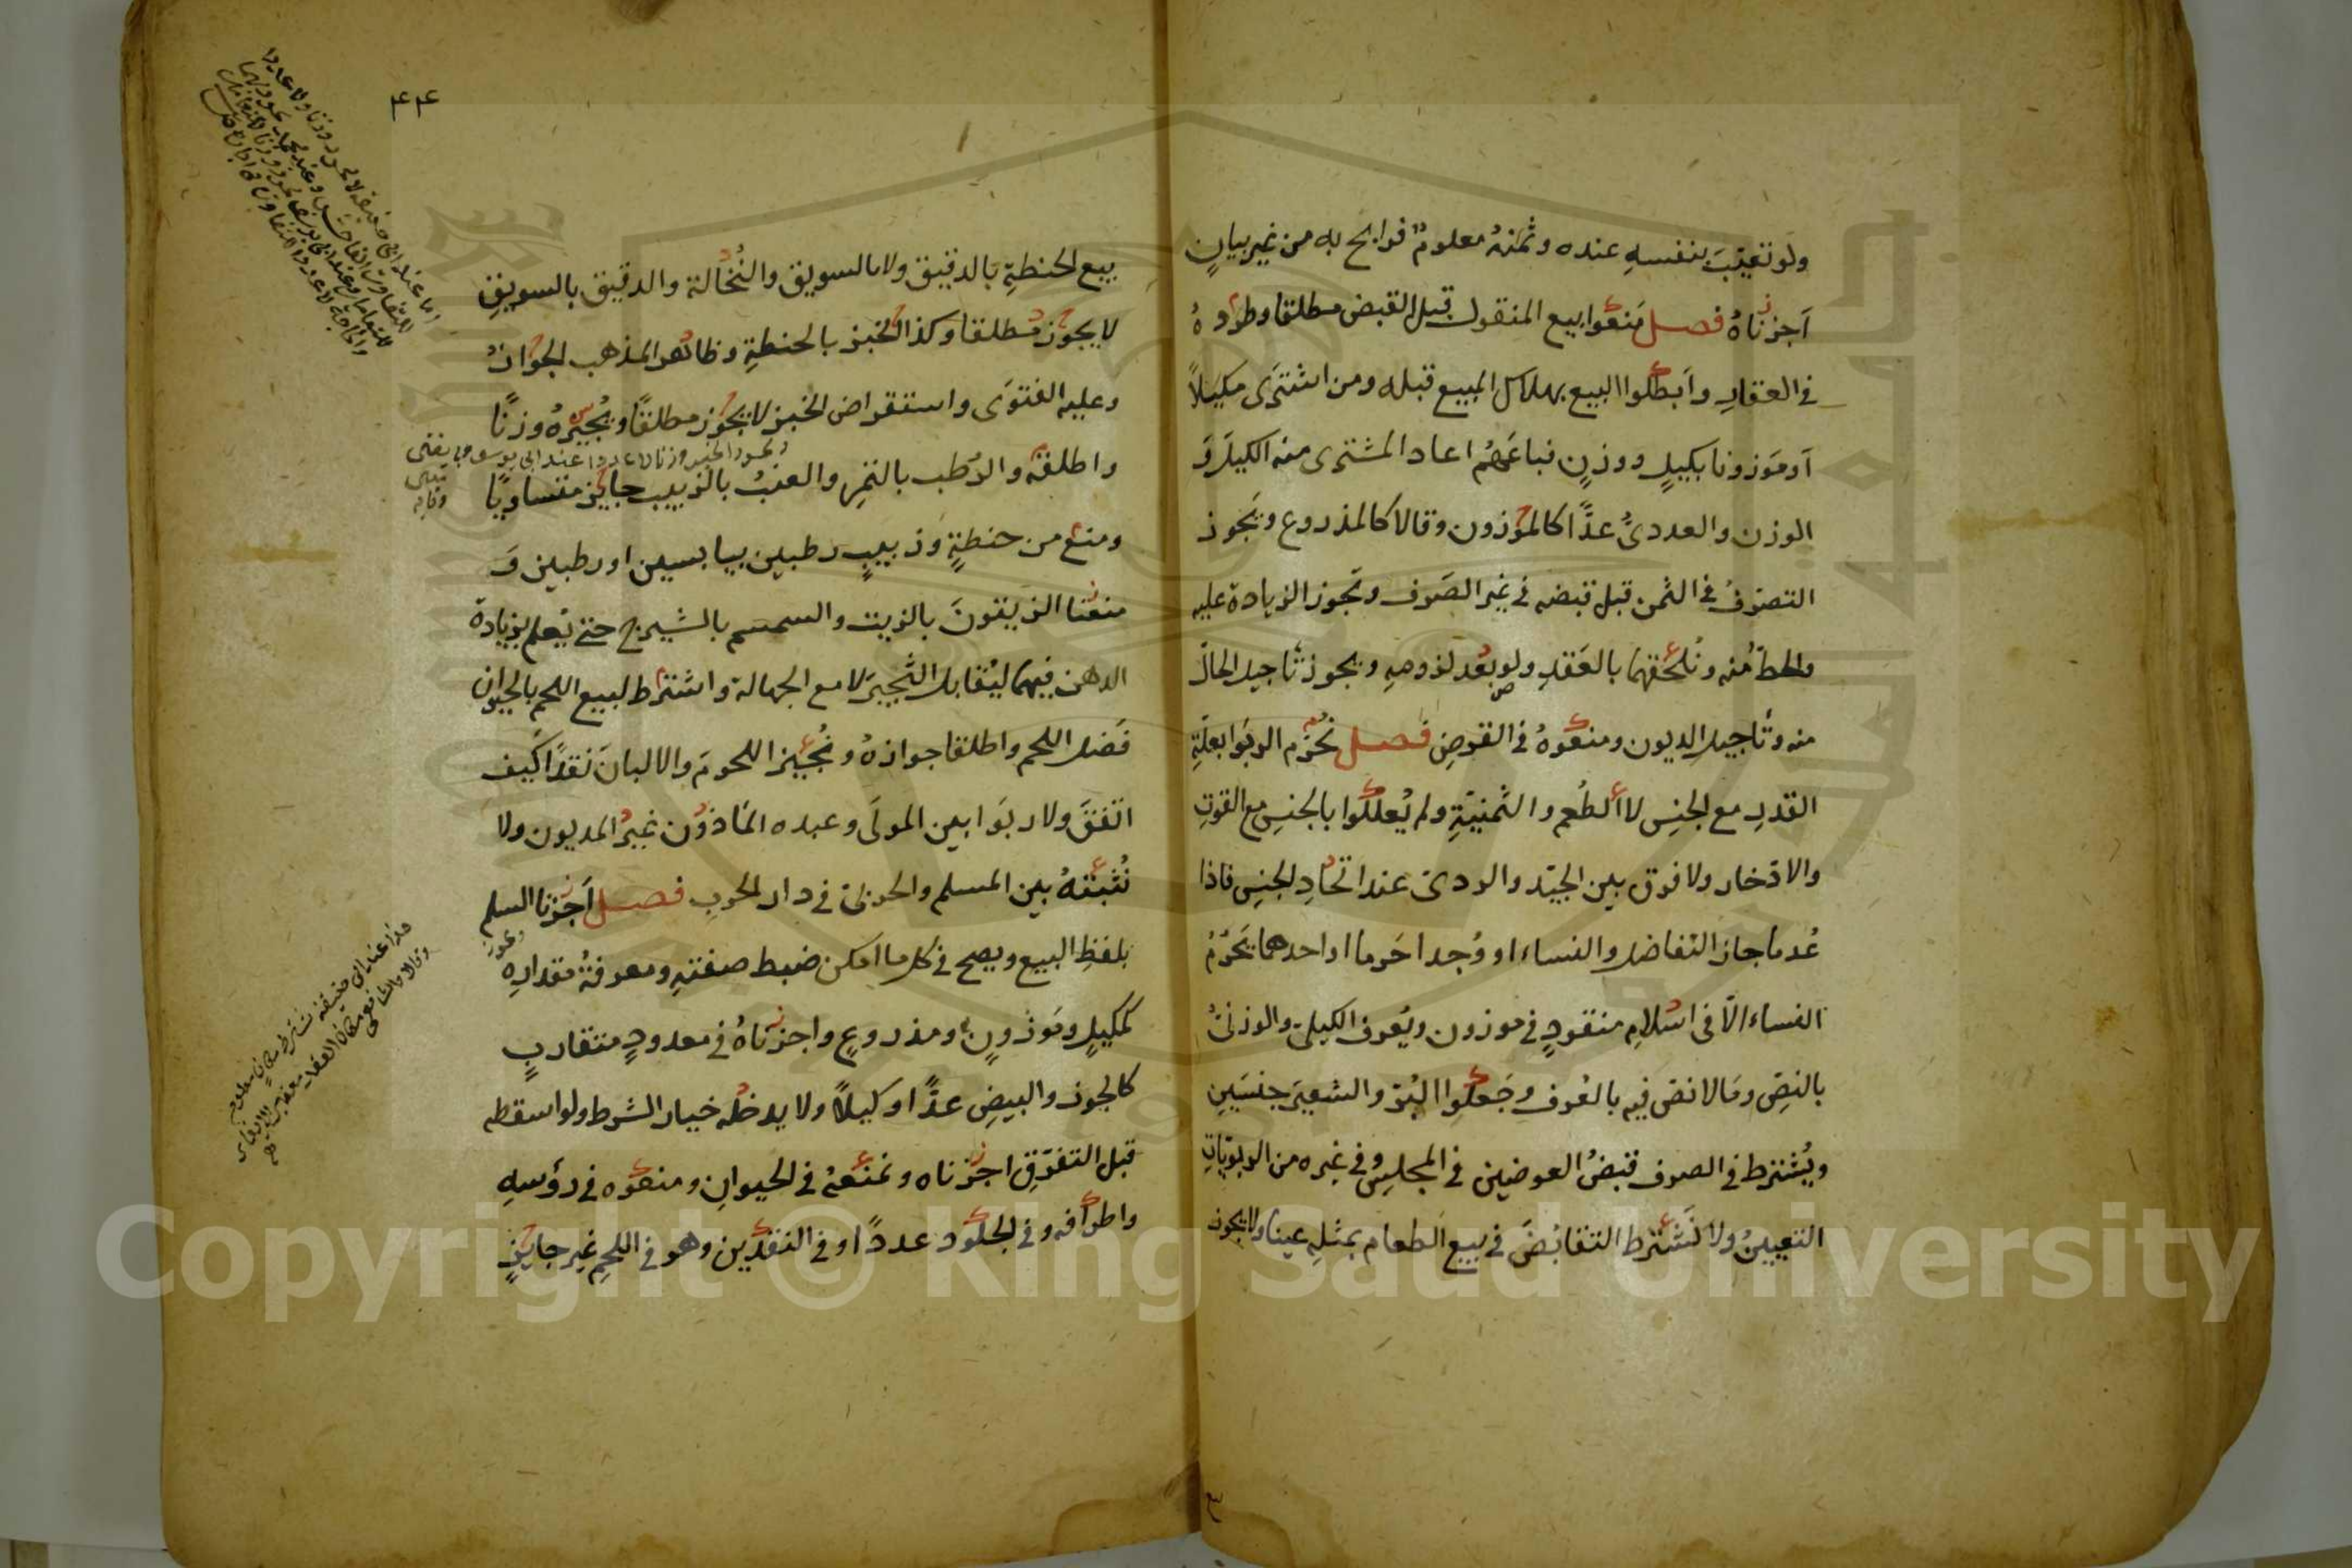 ولو تعيّبَ بنفسهِ عنده وثمنهُ معلومٌ فرابح به من غير بيانٍ
أجزناهُ فصل منعوا بيع المنقول قبل القبض مطلقا وطردهُ
في العقارِ وأبطلوا البيع بهلاك المبيع قبله ومن اشترى مكيلاً
أو موزونا بكيلٍ ووزنٍ فباعهُ اعاد المشتري منه الكيلَ وَ
الوزن والعدديُّ عدًّا كالموزون وقالا كالمذروع ويجوز
التصرفُ في الثمن قبل قبضه في غير الصرف وتجوز الزيادة عليه
والحطّ منه ونُلحقهما بالعقدِ ولو بعد لزومهِ ويجوز تأجيل الحالّ
منه وتأجيل الديون ومنعوهُ في القرضِ فصل نُحرّم الربوا بعلّةِ
القدرِ مع الجنسِ لا الطُعم والثمنيّةِ ولم يُعللوا بالجنسِ مع القوتِ
والادّخار ولا فرق بين الجيّد والردئ عند اتحادِ الجنسِ فاذا
عُدما جاز التفاضل والنساء او وُجدا حَرما او احدهما يَحرُمُ
النساء الّا في اسلامِ منقودٍ في موزون ويُعرف الكيليّ والوزنيُّ
بالنصِ وما لا نصّ فيه بالعُرف وجَعلوا البُرّ والشعيرَ جنسَينِ
ويُشترط في الصرف قبضُ العوضين في المجلسِ وفي غيره من الربويّاتِ
التعيينُ ولا نَشترط التقابُضَ في بيع الطعام بمثلهِ عينا ولا يجوز
٤٤
بيع الحنطةِ بالدقيق ولا بالسويق والنُخالة والدقيق بالسويقِ
لا يجوز مطلقا وكذا الخبز بالحنطةِ وظاهر المذهب الجوازُ
وعليه الفتوَى واستقراض الخبز لا يجوّز مطلقًا ويُجيزهُ وزنًا
واطلقهُ والرُطب بالتمرِ والعنبُ بالزبيب جايز متساويًا
ومنع من حنطةٍ وزبيبٍ رطبين بيابسين او رطبين وَ
منعنا الزيتونَ بالزيت والسمسم بالشيرج حتى يُعلم بزيادة
الدهن فيهما ليُقابل الثجيرَ لا مع الجهالة واشترط لبيع اللحم بالحيوان
فضل اللحم واطلقا جوازهُ ونُجيز اللحومَ والالبانَ نقدًا كيف
اتّفقَ ولا ربوا بين المولَى وعبده المأذون غيرُ المديون ولا
نُثبتهُ بين المسلم والحربيّ في دار الحربِ فصل أجزنا السلم
بلفظِ البيع ويصح في كل ما امكن ضبط صفتهِ ومعرفةُ مقدارِه
كمكيلٍ وموزونٍ ومذروعٍ واجزناهُ في معدودٍ متقاربٍ
كالجوز والبيضِ عدًّا او كيلاً ولا يدخلُه خيار الشرط ولو اسقطه
قبل التفرّقِ اجزناه ونمنعهُ في الحيوانِ ومنعوه في رؤسهِ
واطرافه وفي الجلود عددًا وفي النقدين وهو في اللحمِ غير جايزٍ
Copyright © King Saud University